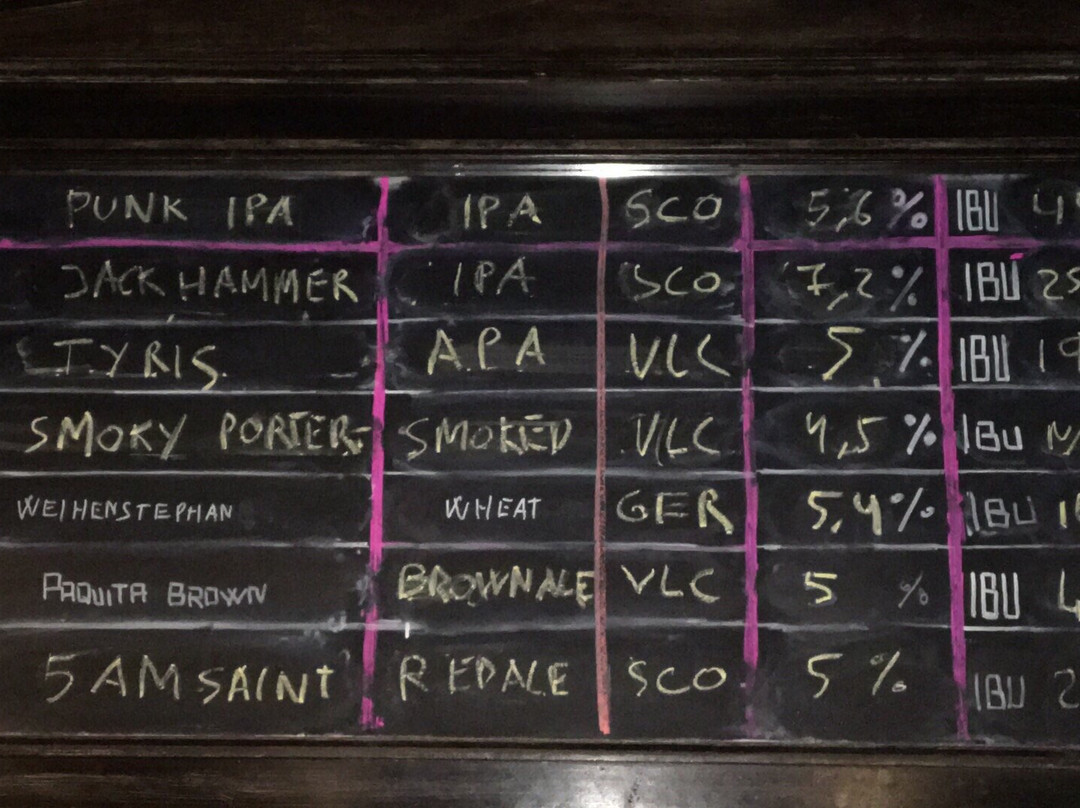 PUNK IPA IPA SCO 5,6 % IBU
JACK HAMMER IPA SCO 7,2 % IBU
TYRIS APA VLC 5 % IBU
SMOKY PORTER SMOKED VLC 4,5 % IBU
WEIHENSTEPHAN WHEAT GER 5,4 % IBU
PAQUITA BROWN BROWN ALE VLC 5 % IBU
5 AM SAINT RED ALE SCO 5 % IBU